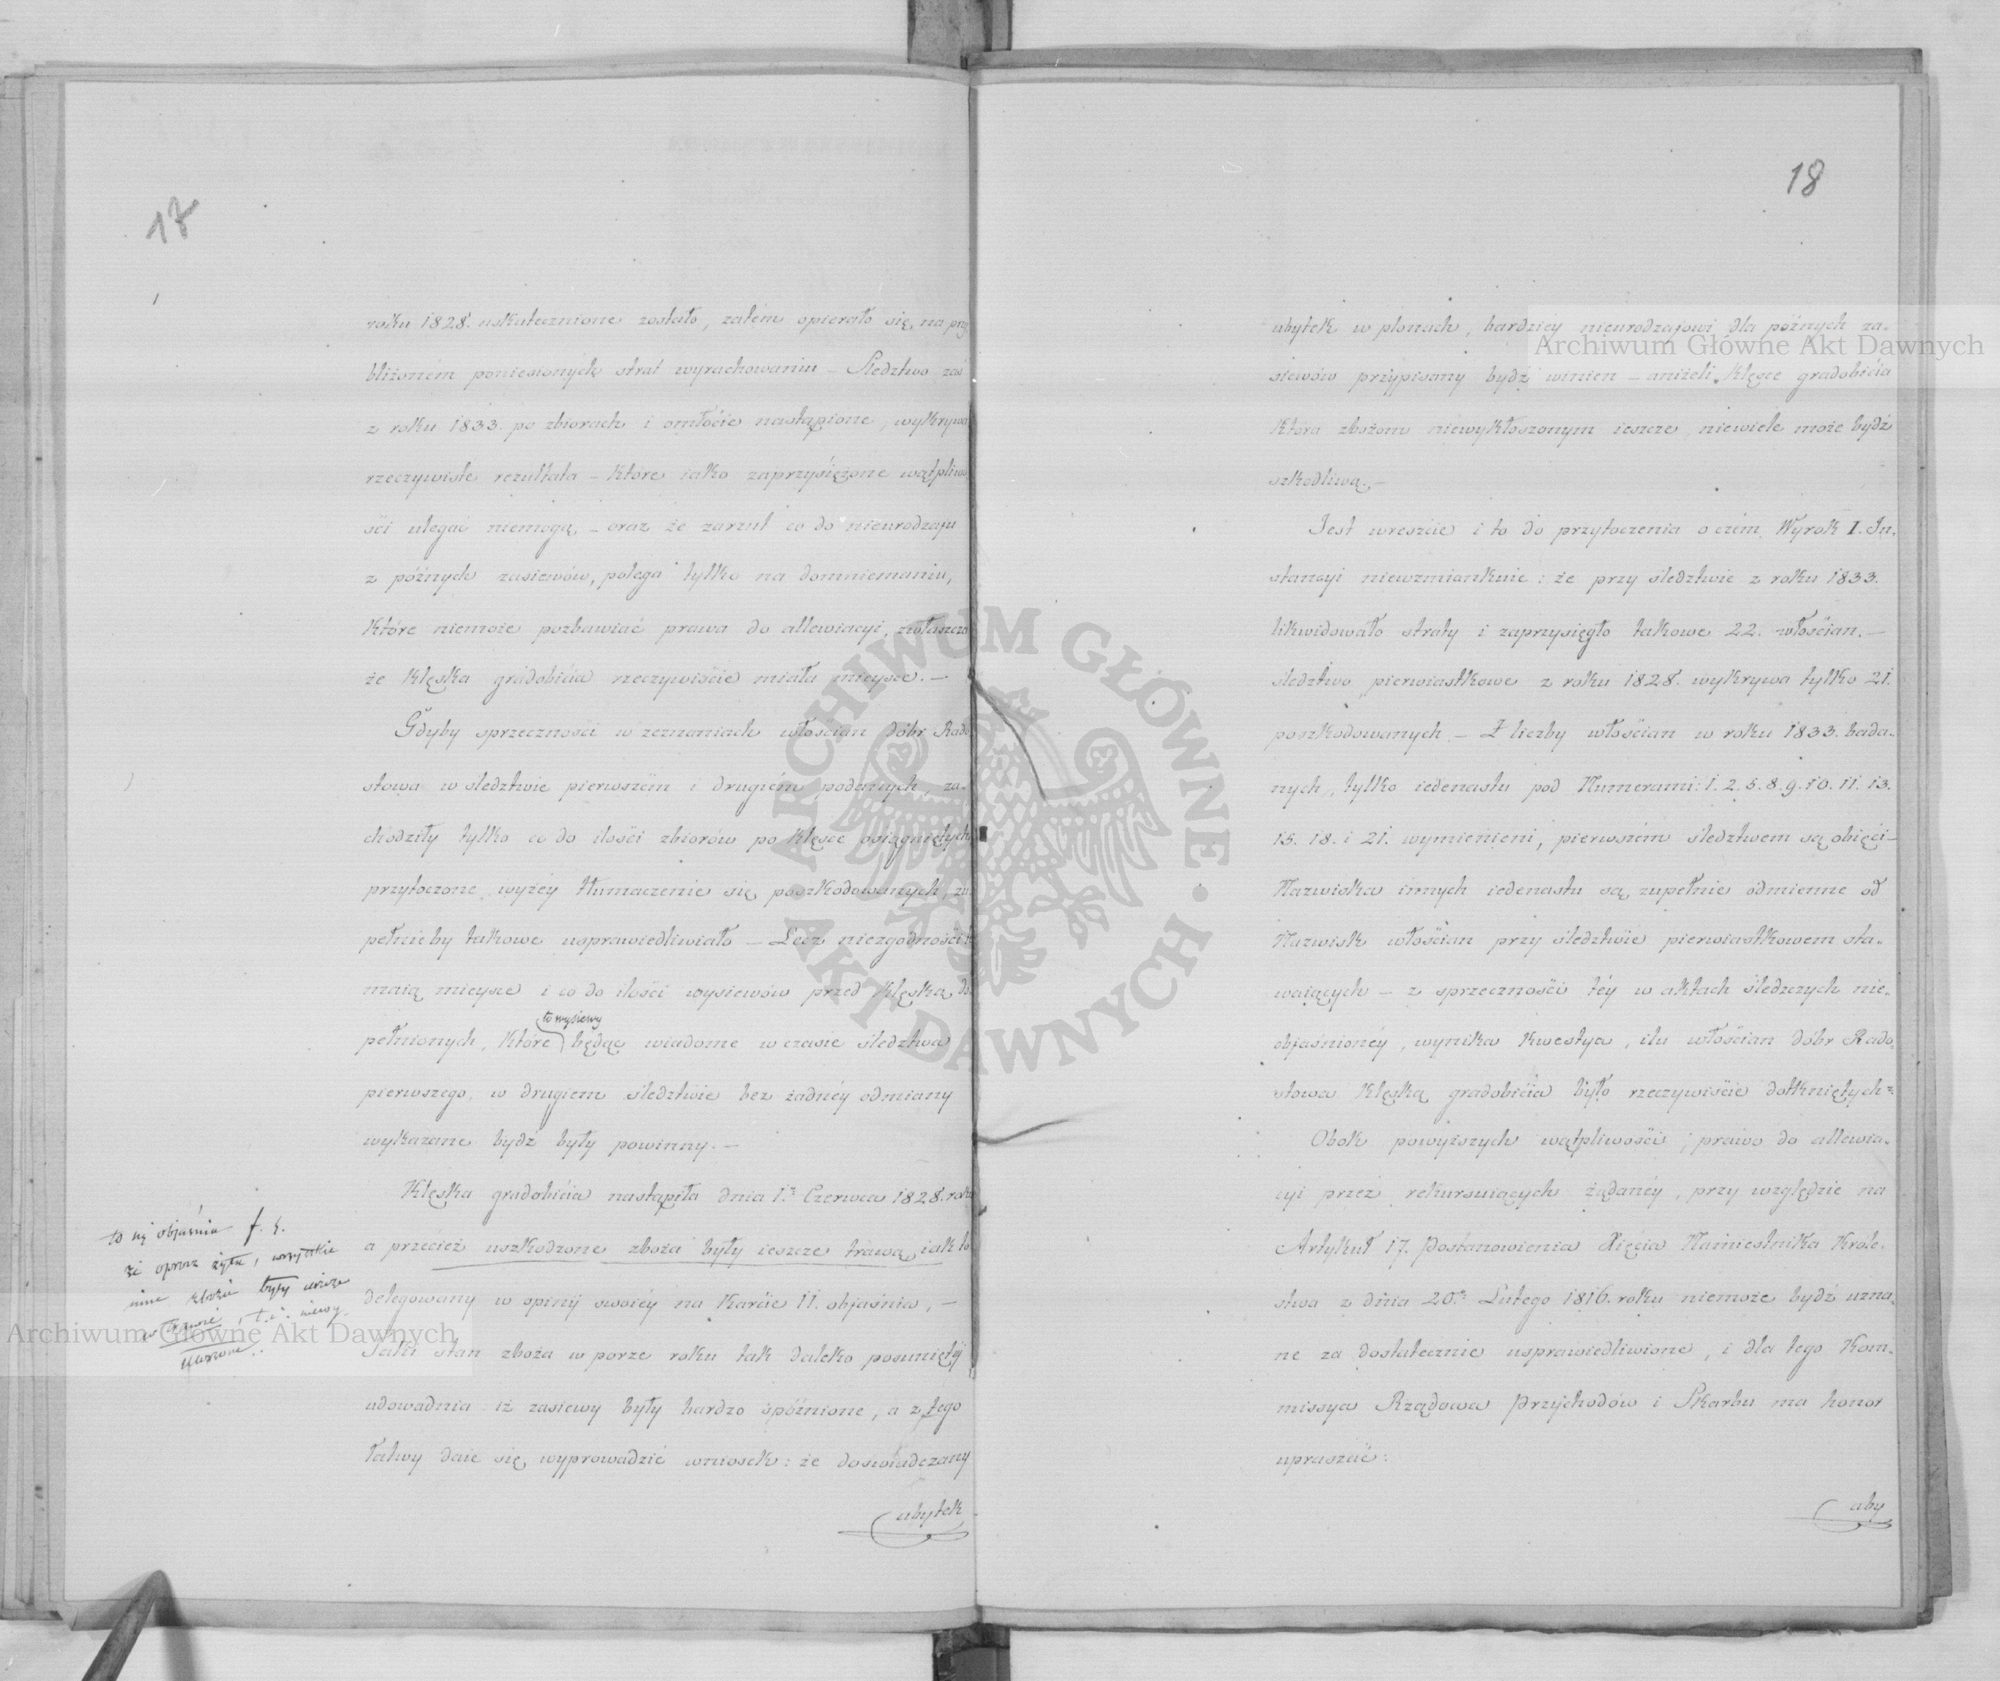 17
roku 1828. uskutecznione zostało, zatem opierało się na przy
bliżonem poniesionych strat wyrachowaniu – Śledztwo zaś
z roku 1833. po zbiorach i omłócie nastąpione, wykrywa
rzeczywiste rezultata – które iako zaprzysiężone wątpliwo
ści ulegać niemogą, – oraz że zarzut co do nieurodzaju
z późnych zasiewów, polega tylko na domniemaniu,
które niemoże pozbawiać prawa do allewiacyi, zwłaszcza
że klęska gradobicia rzeczywiście miała mieysce. –
Gdyby sprzeczności w zeznaniach włościan dóbr Rado
stowa w śledztwie pierwszém i drugiém podanych, za-
chodziły tylko co do ilości zbiorów po klęsce osiągniętych
przytoczone wyżéy tłumaczenie się poszkodowanych, zu
pełnieby takowe usprawiedliwiało – Lecz niezgodności te
maią mieysce i co do ilości wysiewów przed klęską do
pełnionych, które będąc wiadome w czasie śledztwa
to wysiewy
pierwszego, w drugiem śledztwie bez żadnéy odmiany
wykazane bydź były powinny. –
Klęska gradobicia nastąpiła dnia 1. Czerwca 1828. roku
a przecież uszkodzone zboża były ieszcze trawą iak to
delegowany w opinij swoiéy na karcie 11. objaśnia, –
Taki stan zboża w porze roku tak daleko posuniętéy
udowadnia iż zasiewy były bardzo spóźnione, a z tego
łatwy daie się wyprowadzić wniosek: że doświadczany
ubytek
to się objaśnia f. 4.
że oprócz żyta, wszystkie
inne zboża były ieszcze
w trawie, t. i. niewy-
kłoszone
18
ubytek w plonach, bardziéy nieurodzajowi dla późnych za-
siewów przypisany bydź winien – aniżeli klęsce gradobicia
która zbożom niewykłoszonym ieszcze, niewiele może bydź
szkodliwą. –
Jest wreszcie i to do przytoczenia o czém Wyrok I. In-
stancyi niewzmiankuie: że przy śledztwie z roku 1833.
likwidowało straty i zaprzysięgło takowe 22. włościan. –
śledztwo pierwiastkowe z roku 1828. wykrywa tylko 21.
poszkodowanych – Z liczby włościan w roku 1833. bada-
nych, tylko iedenastu pod Numerami: 1. 2. 5. 8. 9. 10. 11. 13.
15. 18. i 21. wymienieni, pierwszém śledztwem są obięci –
Nazwiska innych iedenastu są zupełnie odmienne od
Nazwisk włościan przy śledztwie pierwiastkowem sta-
waiących – z sprzeczności téy w aktach śledczych nie-
objaśnionéy, wynika kwestya, ilu włościan dóbr Rado-
stowa klęską gradobicia było rzeczywiście dotkniętych
Obok powyższych wątpliwości, prawo do allewia-
cyi przez rekursuiących żądanéy, przy względzie na
Artykuł 17. Postanowienia Xięcia Namiestnika Króle-
stwa z dnia 20. Lutego 1816. roku niemoże bydź uzna-
ne za dostatecznie usprawiedliwione, i dla tego Kom-
missya Rządowa Przychodów i Skarbu ma honor
upraszać:
aby
Archiwum Główne Akt Dawnych
Archiwum Główne Akt Dawnych
ARCHIWUM GŁÓWNE AKT DAWNYCH